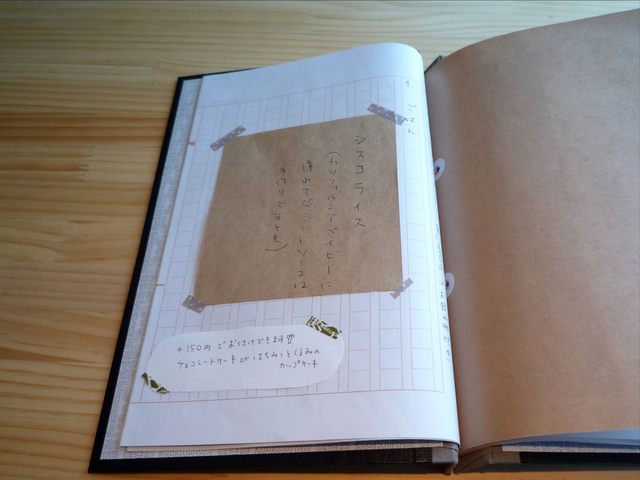 ごはん
シスコライス
(カリフォルニアベイビーに
憧れて♡ミートソースは
手作りですとも)
+150円でお付けできます♡
チョコレートケーキ or はちみつとくるみの
カップケーキ